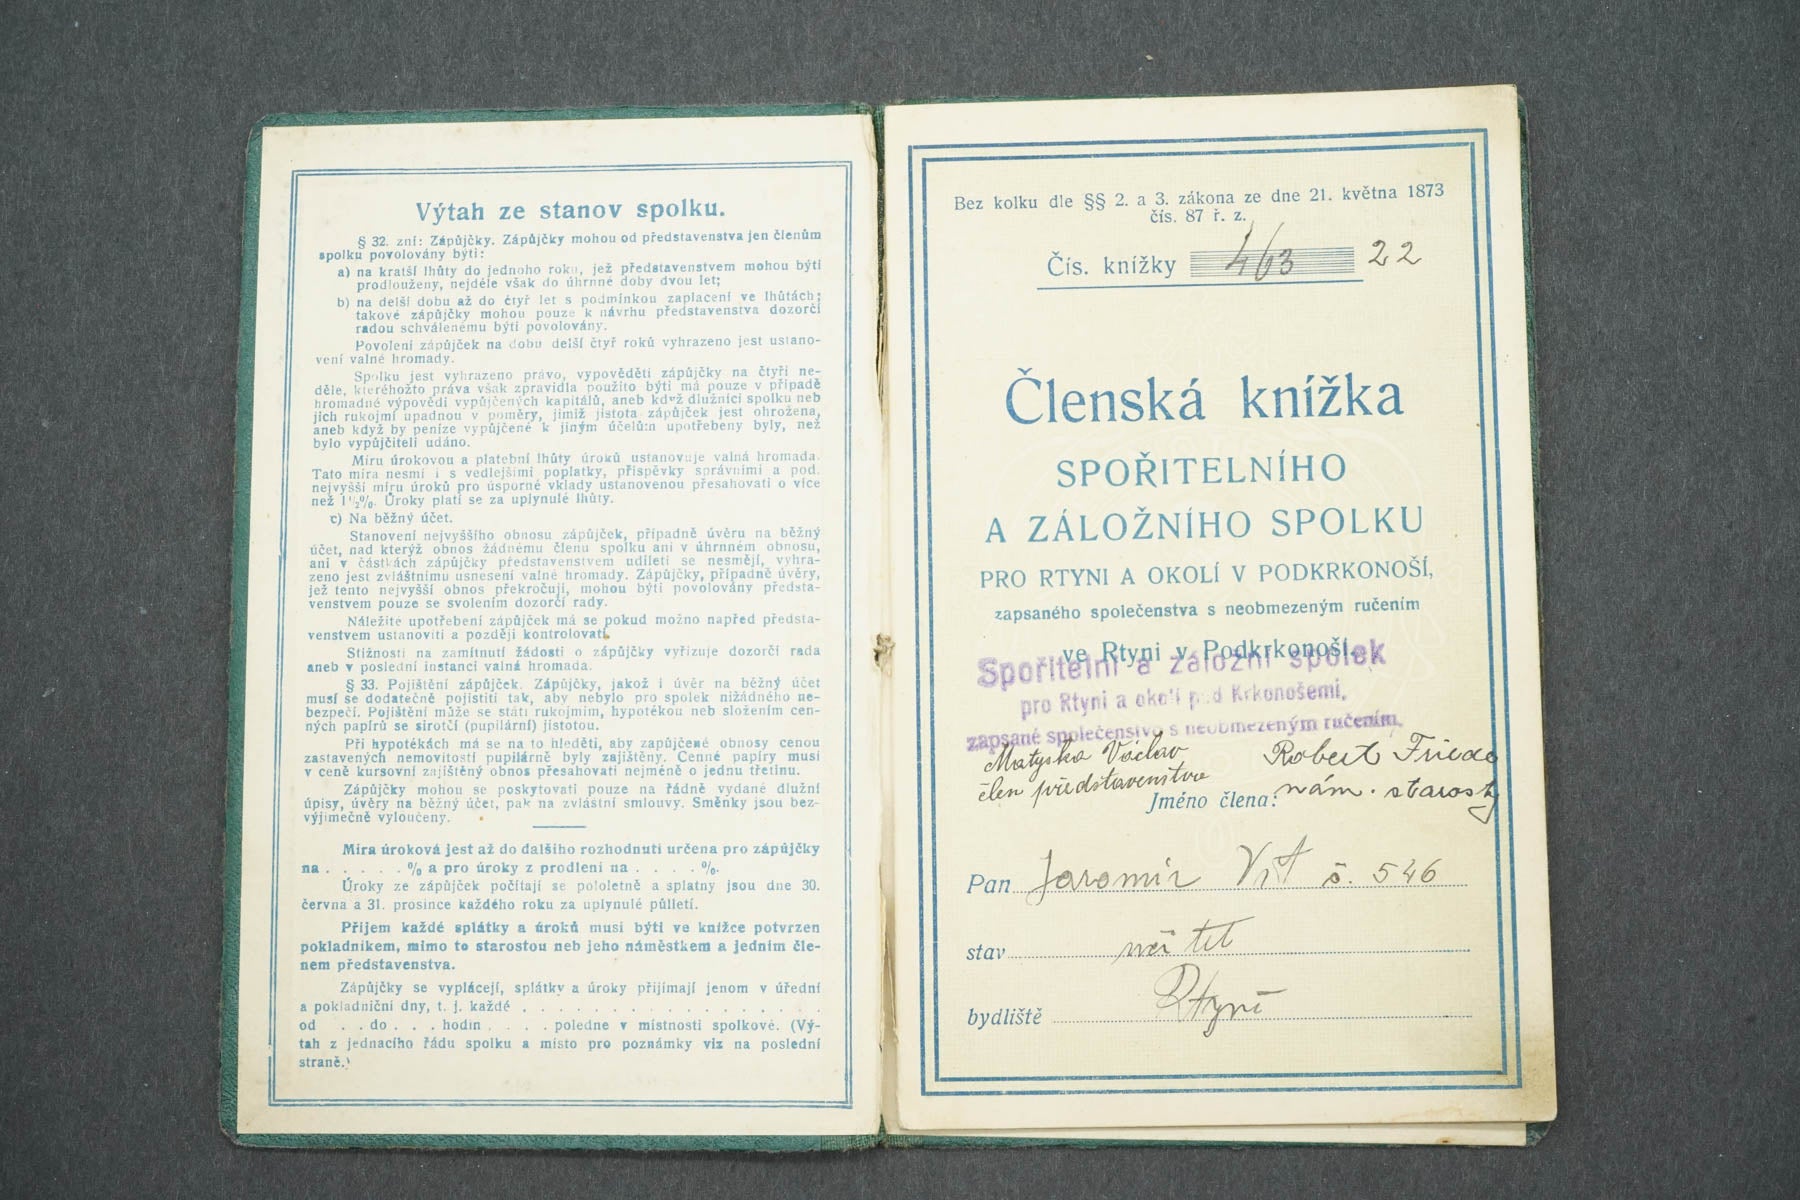 Výtah ze stanov spolku.
§ 32. zní: Zápůjčky. Zápůjčky mohou od představenstva jen členům
spolku povolovány býti:
a) na kratší lhůty do jednoho roku, jež představenstvem mohou býti
prodlouženy, nejdéle však do úhrnné doby dvou let;
b) na delší dobu až do čtyř let s podmínkou zaplacení ve lhůtách;
takové zápůjčky mohou pouze k návrhu představenstva dozorčí
radou schválenému býti povolovány.
Povolení zápůjček na dobu delší čtyř roků vyhrazeno jest ustano-
vení valné hromady.
Spolku jest vyhrazeno právo, vypověděti zápůjčky na čtyři ne-
děle, kteréhožto práva však zpravidla použito býti má pouze v případě
hromadné výpovědi vypůjčených kapitálů, aneb když dlužníci spolku neb
jich rukojmí upadnou v poměry, jimiž jistota zápůjček jest ohrožena,
aneb když by peníze vypůjčené k jiným účelům upotřebeny byly, než
bylo vypůjčiteli udáno.
Míru úrokovou a platební lhůty úroků ustanovuje valná hromada.
Tato míra nesmí i s vedlejšími poplatky, příspěvky správními a pod.
nejvyšší míru úroků pro úsporné vklady ustanovenou přesahovati o více
než 1½%. Úroky platí se za uplynulé lhůty.
c) Na běžný účet.
Stanovení nejvyššího obnosu zápůjček, případně úvěru na běžný
účet, nad kterýž obnos žádnému členu spolku ani v úhrnném obnosu,
ani v částkách zápůjčky představenstvem uděleti se nesmějí, vyhra-
zeno jest zvláštnímu usnesení valné hromady. Zápůjčky, případně úvěry,
jež tento nejvyšší obnos překročují, mohou býti povolovány předsta-
venstvem pouze se svolením dozorčí rady.
Náležité upotřebení zápůjček má se pokud možno napřed předsta-
venstvem ustanoviti a později kontrolovati.
Stížnosti na zamítnutí žádosti o zápůjčky vyřizuje dozorčí rada
aneb v poslední instanci valná hromada.
§ 33. Pojištění zápůjček. Zápůjčky, jakož i úvěr na běžný účet
musí se dodatečně pojistiti tak, aby nebylo pro spolek nižádného ne-
bezpečí. Pojištění může se státi rukojmím, hypotékou neb složením cen-
ných papírů se sirotčí (pupilární) jistotou.
Při hypotékách má se na to hleděti, aby zapůjčené obnosy cenou
zastavených nemovitostí pupilárně byly zajištěny. Cenné papíry musí
v ceně kursovní zajištěný obnos přesahovati nejméně o jednu třetinu.
Zápůjčky mohou se poskytovati pouze na řádně vydané dlužní
úpisy, úvěry na běžný účet, pak na zvláštní smlouvy. Směnky jsou bez-
výjimečně vyloučeny.
Míra úroková jest až do dalšího rozhodnutí určena pro zápůjčky
na . . . . . % a pro úroky z prodlení na . . . . %.
Úroky ze zápůjček počítají se pololetně a splatny jsou dne 30.
června a 31. prosince každého roku za uplynulé půlletí.
Příjem každé splátky a úroků musí býti ve knížce potvrzen
pokladníkem, mimo to starostou neb jeho náměstkem a jedním čle-
nem představenstva.
Zápůjčky se vyplácejí, splátky a úroky přijímají jenom v úřední
a pokladniční dny, t. j. každé . . . . . . . . . . . . . . . .
od . . do . . . hodin . . . . poledne v místnosti spolkové. (Vý-
tah z jednacího řádu spolku a místo pro poznámky viz na poslední
straně.)
Bez kolku dle §§ 2. a 3. zákona ze dne 21. května 1873
čís. 87 ř. z.
Čís. knížky 463 22
Členská knížka
SPOŘITELNÍHO
A ZÁLOŽNÍHO SPOLKU
PRO RTYNI A OKOLÍ V PODKRKONOŠÍ,
zapsaného společenstva s neobmezeným ručením
ve Rtyni v Podkrkonoší.
Spořitelní a záložní spolek
pro Rtyni a okolí pod Krkonošemi,
zapsané společenstvo s neobmezeným ručením,
Matyska Václav Robert
člen představenstva nám. starosty
Jméno člena:
Pan Jaromír Vít č. 546
stav učitel
bydliště Rtyni